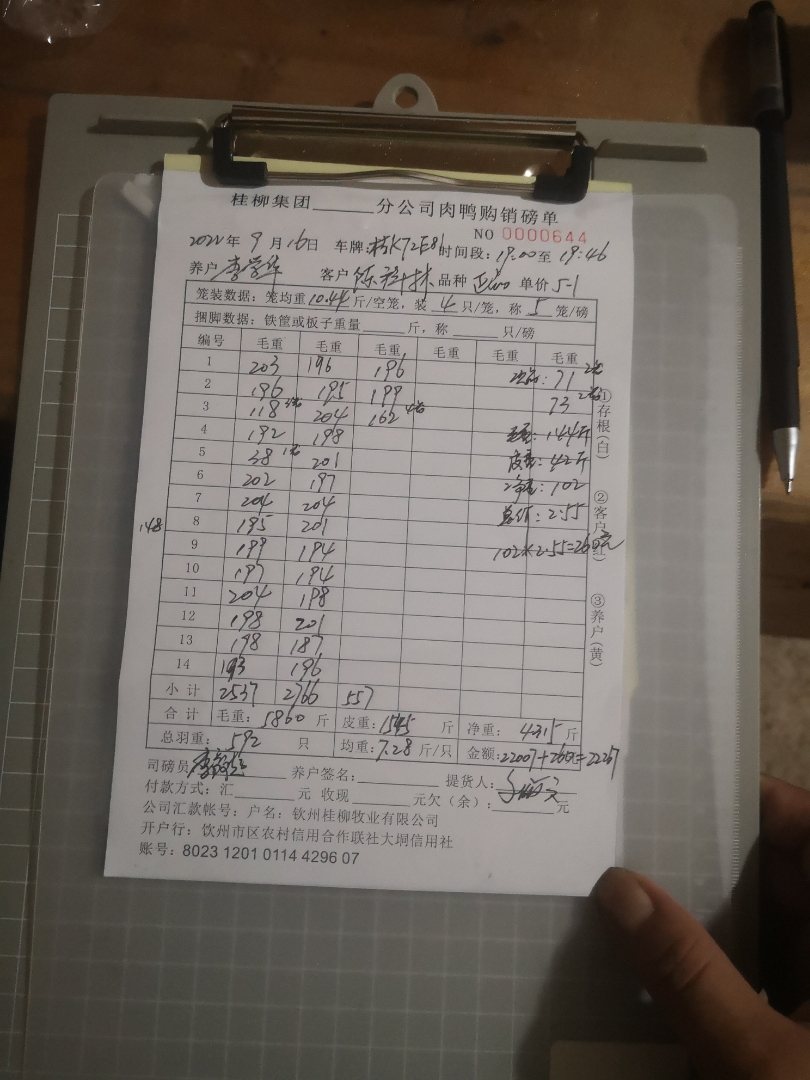 桂柳集团______分公司肉鸭购销磅单
NO 0000644
2022年 9 月 16日 车牌: 时间段: 19:00至 19:46
养户 李 客户 陈 品种 单价 5-1
笼装数据：笼均重10.44斤/空笼，装 4 只/笼，称 5 笼/磅
捆脚数据：铁筐或板子重量______斤，称______只/磅
编号 毛重 毛重 毛重 毛重 毛重 毛重
1 203 196 196 : 71 2笼
2 196 195 199 73 2笼
3 118 3笼 204 162 4笼
4 192 198 毛重: 144斤
5 38 1笼 201 皮重: 42斤
6 202 197 净重: 102
7 204 204 单价: 2.55
148 8 195 201
9 199 194 102×2.55=260元
10 197 194
11 204 198
12 198 201
13 198 187
14 193 196
小 计 2537 2766 557
合 计 毛重: 5860 斤 皮重: 1545 斤 净重: 4315 斤
总羽重: 592 只 均重: 7.28 斤/只 金额: 22007+260=22267
司磅员 养户签名:________ 提货人:
付款方式：汇________元 收现________元欠（余）:________元
公司汇款帐号：户名：钦州桂柳牧业有限公司
开户行：饮州市区农村信用合作联社大垌信用社
账号：8023 1201 0114 4296 07
①存根(白)
②客户(红)
③养户(黄)